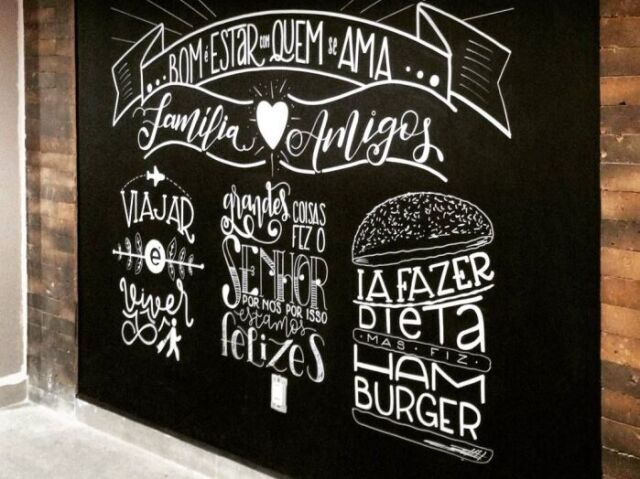 ...BOM é ESTAR com QUEM se AMA...
Família Amigos
VIAJAR
e
Viver
grandes COISAS
FEZ O
SENHOR
POR NÓS POR ISSO
estamos
felizes
IA FAZER
DIETA
MAS FIZ
HAM
BURGER